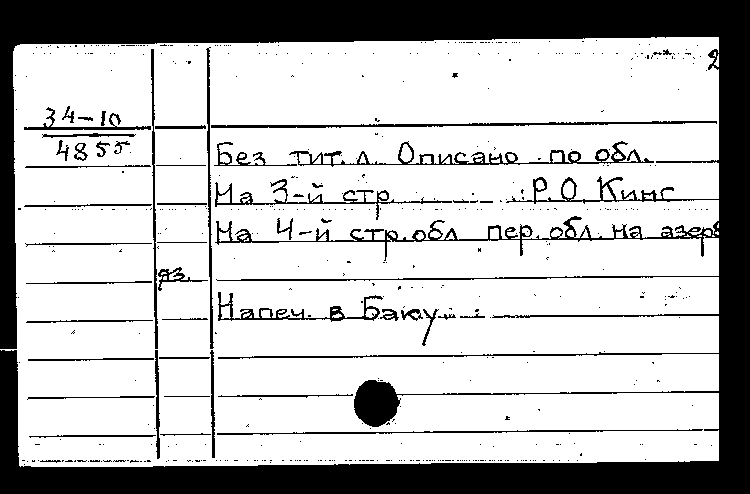 2
34-10
4855
Без тит. л. Описано по обл.
На 3-й стр. Р. О. Кинс
На 4-й стр. обл. пер. обл. на азерб
яз.
Напеч. в Баку.